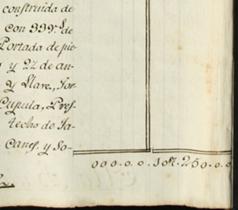 construida de
con 999 r.s de
Portada de pie
y 22 de an-
y Llave, For
Cupula, Pres
techo de Ja-
canes, y So-
000.0.0. 107.250.0.0